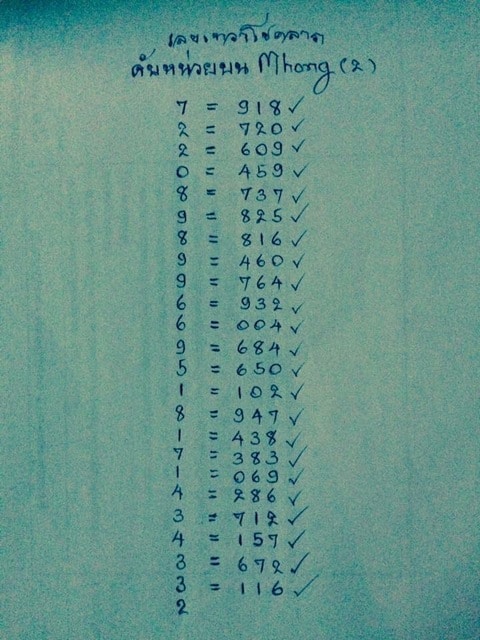 เลขเทวาโชคลาภ
ดับหน่วยบน Mhong (2)
7 = 918 ✓
2 = 720 ✓
2 = 609 ✓
0 = 459 ✓
8 = 737 ✓
9 = 825 ✓
8 = 816 ✓
9 = 460 ✓
9 = 764 ✓
6 = 932 ✓
6 = 004 ✓
9 = 684 ✓
5 = 650 ✓
1 = 102 ✓
8 = 947 ✓
1 = 438 ✓
7 = 383 ✓
1 = 069 ✓
4 = 286 ✓
3 = 712 ✓
4 = 157 ✓
3 = 672 ✓
3 = 116 ✓
2